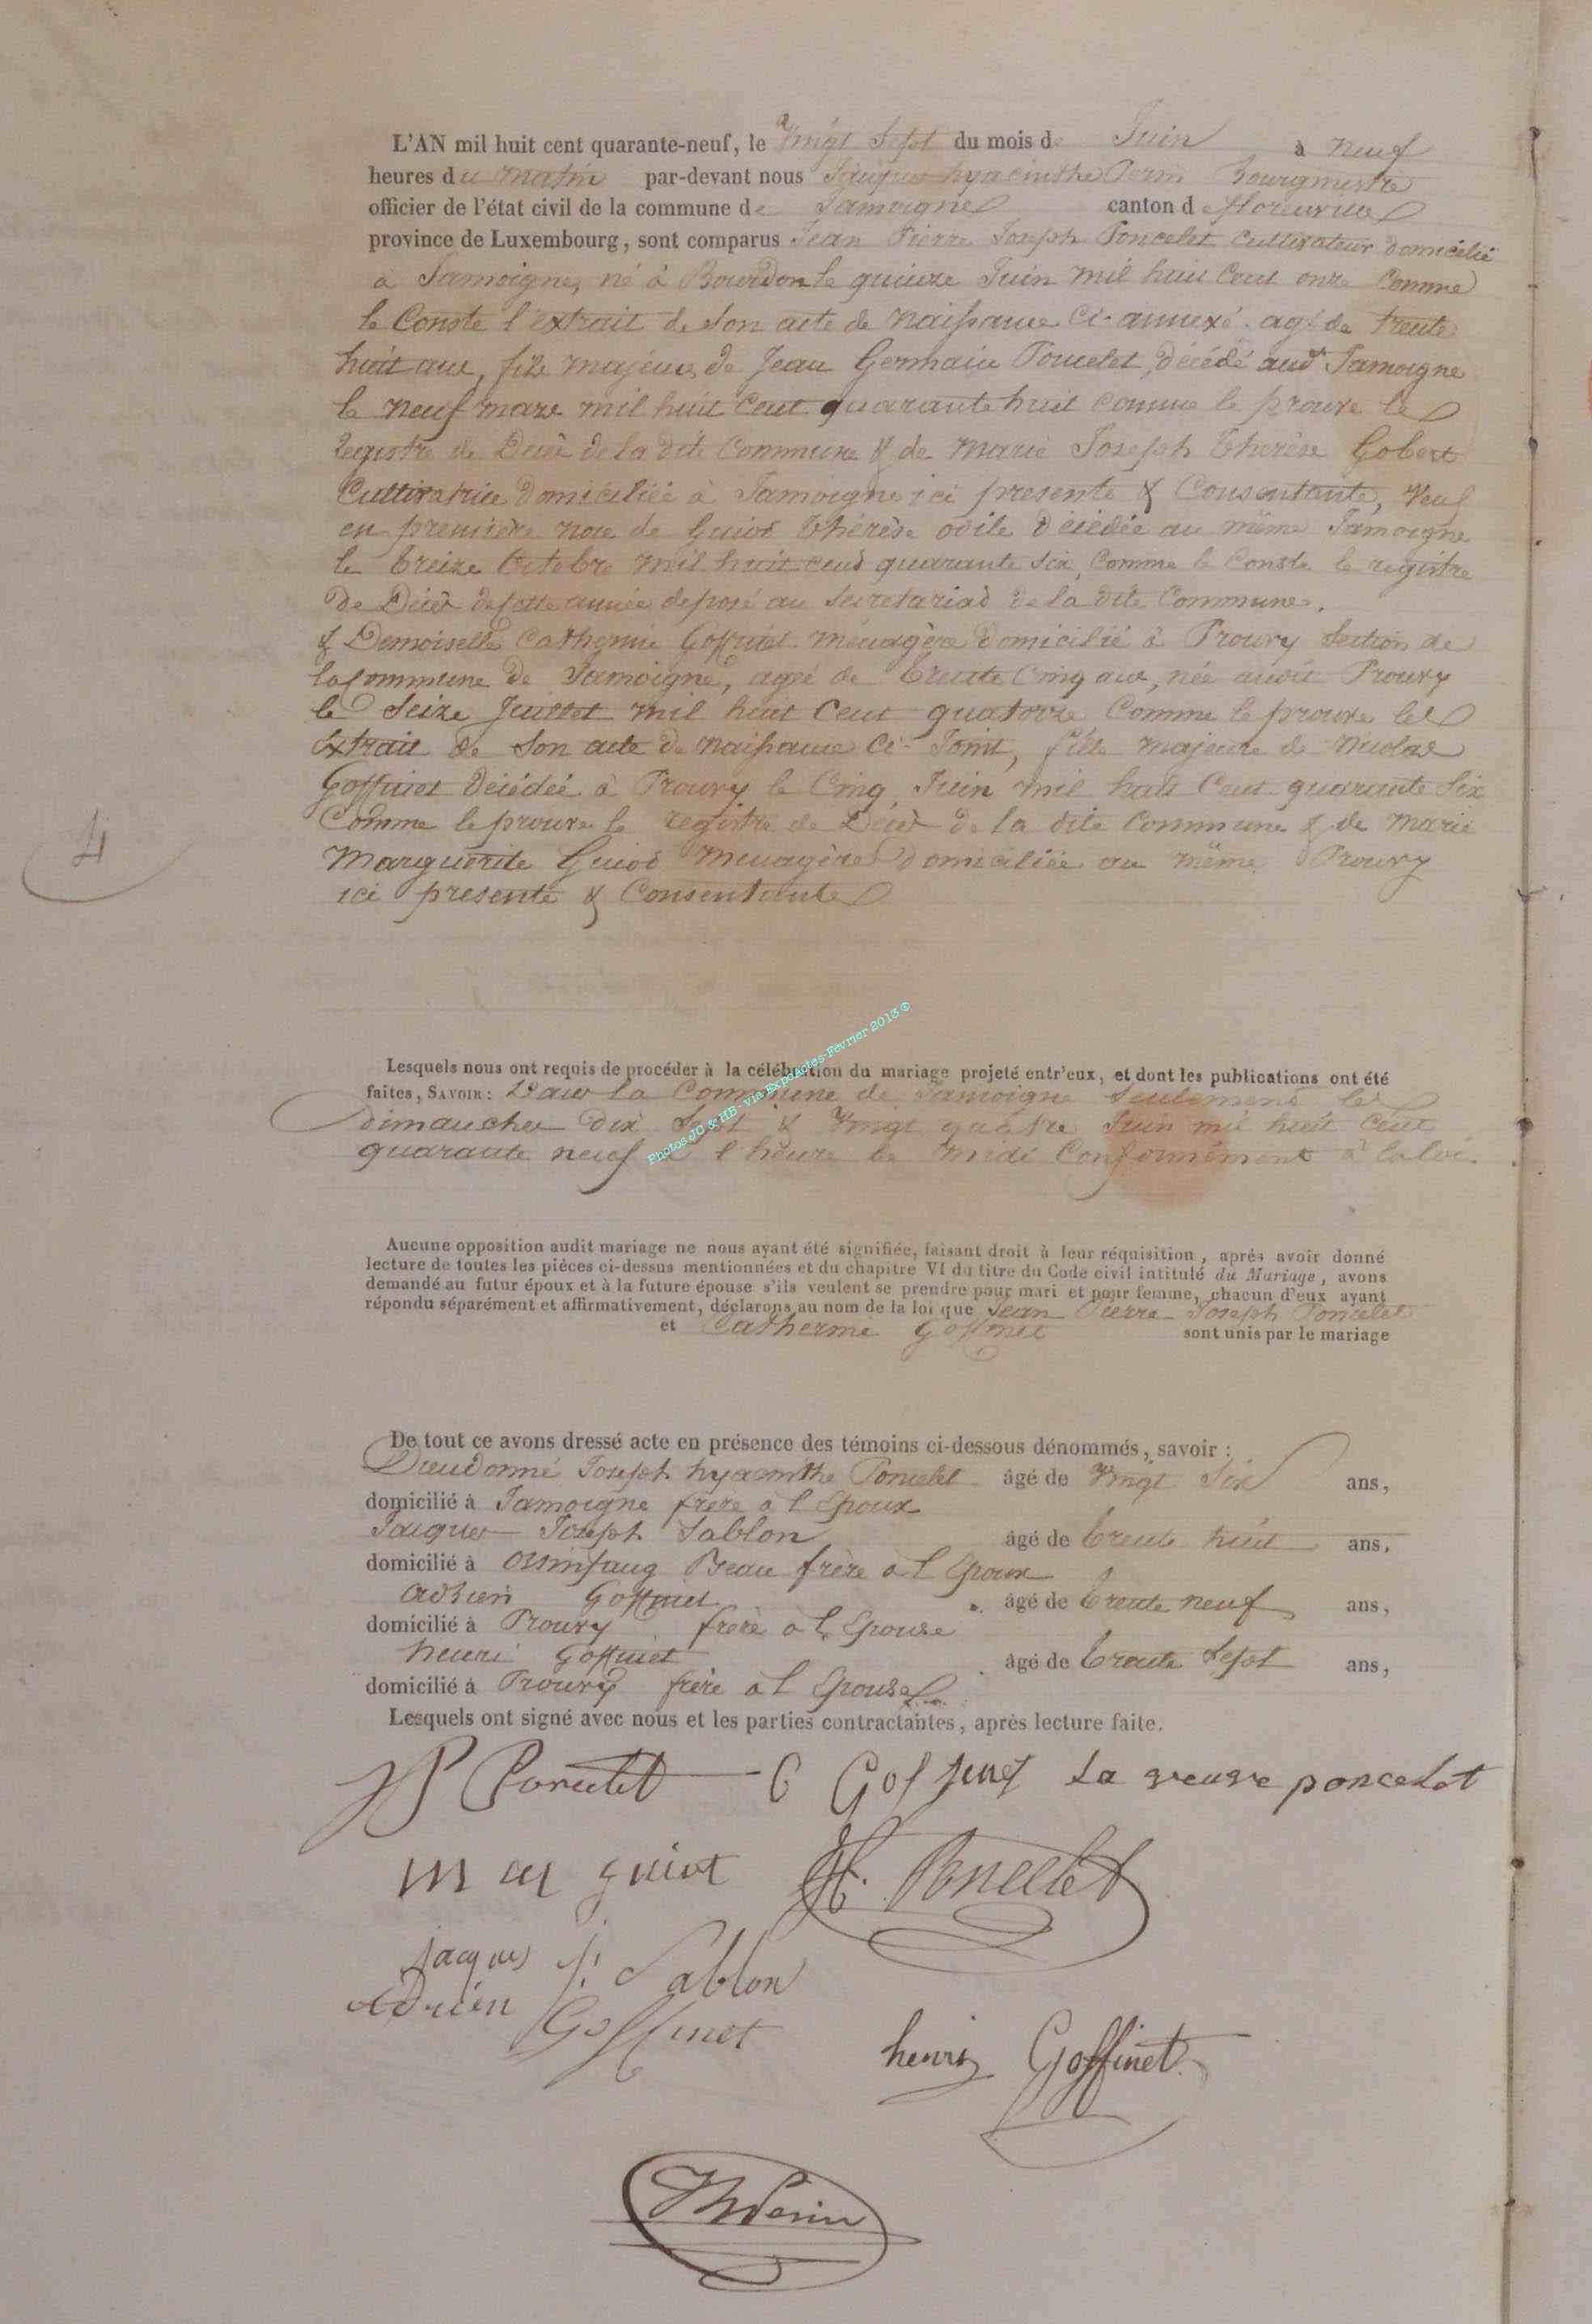 L'AN mil huit cent quarante-neuf, le Vingt Sept du mois de Juin à neuf
heures du matin par-devant nous Jacques hyacinthe Perin Bourgmestre
officier de l'état civil de la commune de Jamoigne canton de florenville
province de Luxembourg, sont comparus Jean Pierre Joseph Poncelet Cultivateur domicilié
à Jamoigne, né à Bourdon le quinze Juin mil huit Cent onze Comme
le Conste l'extrait de Son acte de naissance Ci-annexé. agé de trente
huit ans, fils majeur de Jean Germain Poncelet, décédé audt Jamoigne
le neuf mars mil huit Cent quarante huit comme le prouve le
Registre de Décès de la dite Commune & de Marie Joseph thérèse Gobert
Cultivatrice domiciliée à Jamoigne ici presente & Consentante, Veuf
en première noce de Guiot thérèse odile décédée au même Jamoigne
le treize octobre mil huit cent quarante Six, Comme le Conste le registre
de Décès de cette année déposé au Secretariat de la dite Commune.
& Demoiselle Catherine Goffinet menagère domicilié à Prouvy Section de
la Commune de Jamoigne, agée de trente Cinq ans, née audit Prouvy
le Seize Juillet mil huit Cent quatorze Comme le prouve le
Extrait de Son acte de naissance Ci-Joint, fille majeure de Nicolas
Goffinet décédée à Prouvy le Cinq Juin mil huit Cent quarante Six
Comme le prouve le registre de Décès de la dite Commune & de Marie
Marguerite Guiot Menagère domiciliée au même Prouvy
ici presente & Consentante
4
Lesquels nous ont requis de procéder à la célébration du mariage projeté entr'eux, et dont les publications ont été
faites, SAVOIR: Dans la Commune de Jamoigne Seulement les
dimanches dix Sept & Vingt quatre Juin mil huit Cent
quarante neuf à l'heure de midi Conformément à la loi.
Photos JC & HB - via ExpoActes-Février 2013 ®
Aucune opposition audit mariage ne nous ayant été signifiée, faisant droit à leur réquisition, après avoir donné
lecture de toutes les pièces ci-dessus mentionnées et du chapitre VI du titre du Code civil intitulé du Mariage, avons
demandé au futur époux et à la future épouse s'ils veulent se prendre pour mari et pour femme, chacun d'eux ayant
répondu séparément et affirmativement, déclarons au nom de la loi que Jean Pierre Joseph Poncelet
et Catherine Goffinet sont unis par le mariage
De tout ce avons dressé acte en présence des témoins ci-dessous dénommés, savoir:
Dieudonné Joseph hyacinthe Poncelet âgé de Vingt Six ans,
domicilié à Jamoigne frère à l'Epoux
Jacques Joseph Sablon âgé de trente huit ans,
domicilié à Beau frère à l'Epoux
adrien Goffinet âgé de trente neuf ans,
domicilié à Prouvy frère à l'Epouse
henri Goffinet âgé de trente Sept ans,
domicilié à Prouvy frère à l'Epouse
Lesquels ont signé avec nous et les parties contractantes, après lecture faite.
JP Poncelet C Goffinet La veuve poncelet
guiot H. Poncelet
Jacques J. Sablon
Adrien Goffinet
henri Goffinet
JH Perin